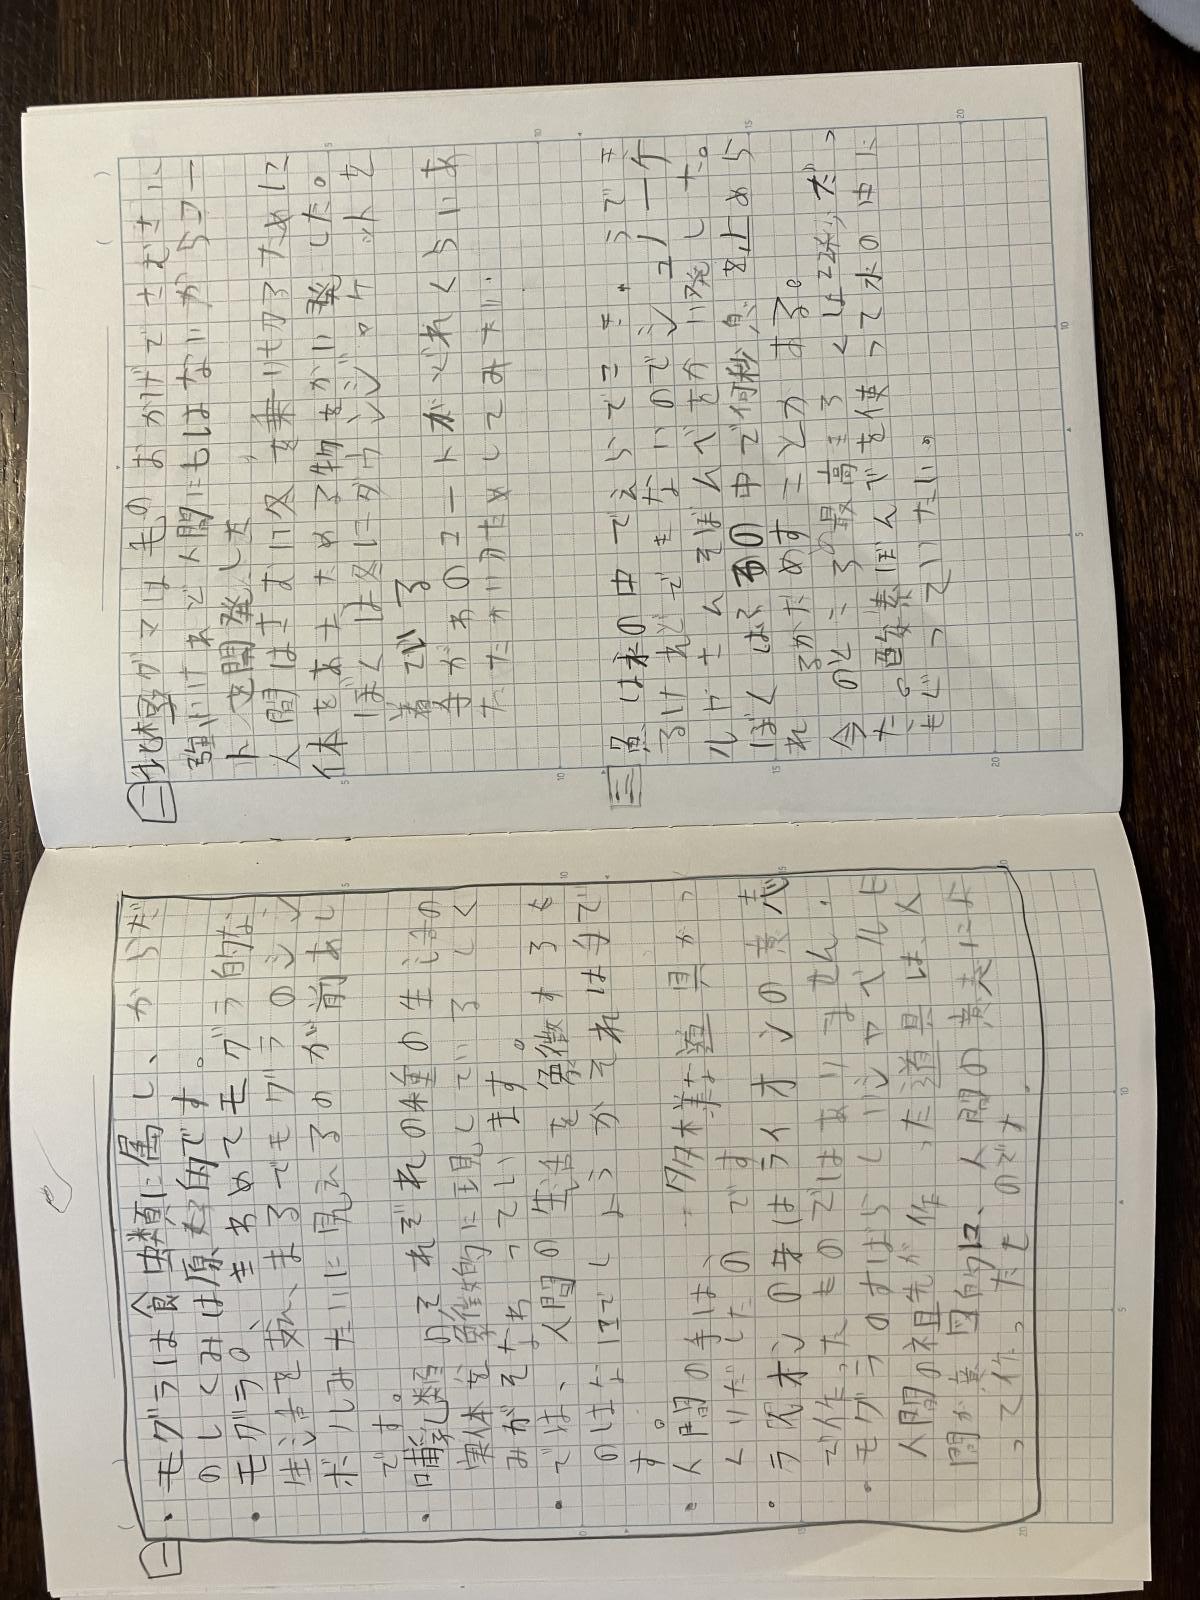 一
・モグラは食虫類に属し、からだ
のしくみは原始的です。
・モグラの、きわめてモグラ的な
生活を支え、まるでモグラのシン
ボルみたいに見えるのが前あし
です。
・哺乳類のそれぞれの種の生活の
実体を象徴的に現しているしく
みがそなわっています。
・では、人間の生活を象徴するも
のはなにでしょうかそれは手で
す。
・人間の手は、多様な道具がつ
くりだしたのです
・ライオンの牙はライオンの意志
で作ったものではありません.
・モグラのすばらしいシャベルも
人間の祖先が作った道具は、人
間が意図的に、人間の意志によ
って作ったものです.
二
北極グマは毛のおかげでさむさに
強いけれど人間にもはないからコー
トを開発した
人間はさむい冬を乗り切るために
体をあたためる物をかい発した。
ぼくは冬にダウンジャケットを
着ている
寺があのコートがどれくらいあ
たたかいかためしてみたい.
三
魚は水の中でえらでこきゅうでき
るけれどできないのでシュノーケ
ルやさんそぼんべをかい発した。
ぼくはふろの中で何秒息を止めら
れるかためすことがある。
今のところの最高きろくは24秒だっ
た。酸素ぼんべを使って水の中に
もぐっていたい。